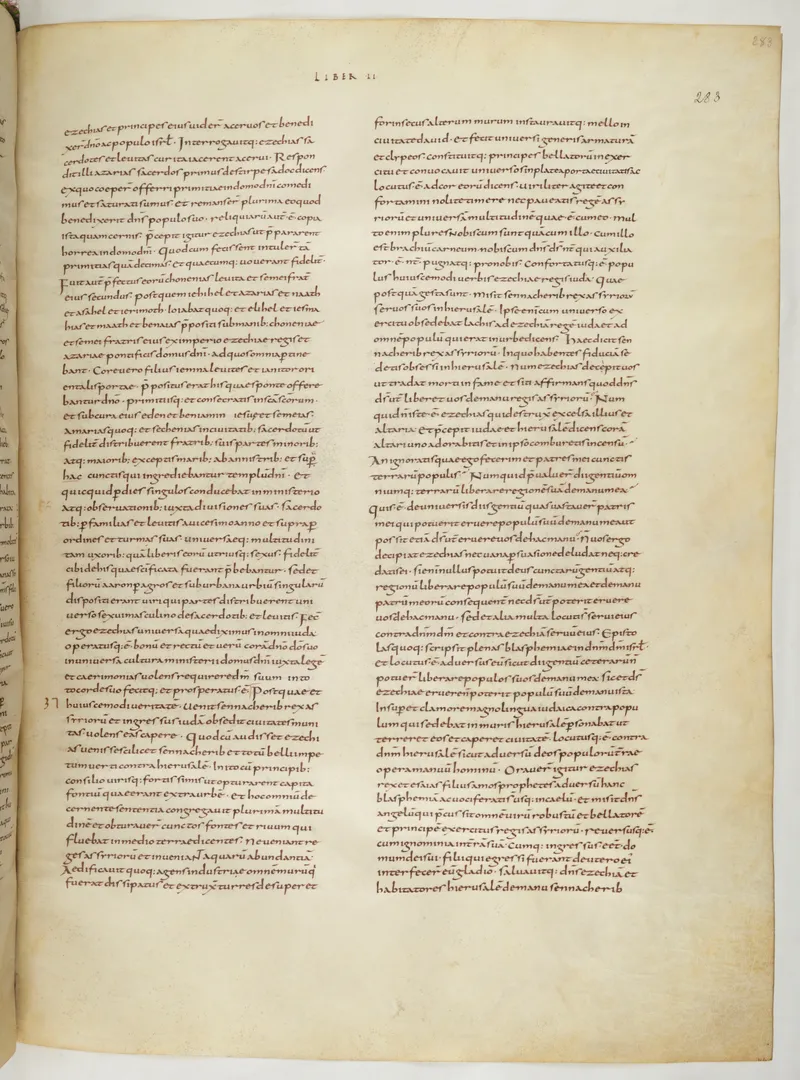 LIBER II
283
283
ezechias et principes eius uider̄ aceruos et benedi
xer̄ dn̄o ac populo isrł. Interrogauitq: ezechias sa
cerdotes et leuitas cur ita iacerent acerui. Respon
dit illi azarias sacerdos primus de stirpe sadoc dicens
ex quo coeper̄ offerri primitiae in domo dn̄i comedi
mus et saturati sumus et remanser̄ plurima eo quod
benedixerit dn̄s populo suo. reliquiarū aut̄ ē copia
ista quam cernis. p̄cepit igitur ezechias ut p̄pararent
horrea in domo dn̄i. Quod cum fecissent intuler̄ tā
primitias quā decimas et quaecumq: uouerant fideliť.
Fuit aut̄ p̄fectus eorū chonenias leuita et semei frat̄
eius secundus. post quem iehihel et azarias et naath
et asahel et ierimoth. iozabat quoq: et elihel et iesma
hias et maath et benaias p̄positi sub manib: choneniae
et semei fratris eius ex imperio ezechiae regis et
azariae pontificis domus dn̄i. ad quos omnia ptine
bant. Core uero filius iemna leuites et ianitor ori
entalis portae. p̄positus erat his quae sponte offere
bantur dn̄o. primitiisq: et consecratis in sc̄a sc̄orum.
et sub cura eius eden et beniamin. iesue et semeias.
amariasq: et sechenias in ciuitatib: sacerdotū ut
fideliť distribuerent fratrib: suis partes minorib:
atq: maiorib: exceptis marib: ab annis trib: et sup̄
hac cunctis qui ingrediebantur templū dn̄i. et
quicquid p dies singulos conducebat in ministerio
atq: obseruationib: iuxta diuisiones suas. sacerdo
tib: p familias et leuitis a uicesimo anno et supra p
ordines et turmas suas uniuersaeq: multitudini
tam uxorib: quā liberis eorū utriusq: sexus. fideliť
cibi de his quae sc̄ificata fuerant p̄bebantur. sed et
filiorū aaron p agros et suburbana urbiū singularū
dispositi erant uiri qui partes distribuerent uni
uerso sexui masculino de sacerdotib: et leuitis. Fec̄
ergo ezechias uniuersa quae diximus in omni iuda
operatusq: ē bonū et rectū et uerū corā dn̄o dō suo
in uniuersa cultura ministerii domus dn̄i iuxta legē
et caerimonias uolens requirere dm̄ suum in to
to corde suo fecitq: et prosperatus ē. Post quae et
huiuscemodi ueritatē. uenit sennacherib rex as
syriorū et ingressus iudā obsedit ciuitates muni
tas uolens eas capere. Quod cū audisset ezechi
as uenisse scilicet sennacherib et totū belli impe
tum uerti contra hierusalē. Inito cū principib:
consilio uirisq: fortissimis ut opturarent capita
fontiū quae erant extra urbē. et hoc omniū de
cernente sententia congregauit plurimā multitu
dinē et obturauer̄ cunctos fontes et riuum qui
fluebat in medio terrae dicentes. Ne ueniant re
ges assyriorū et inueniant aquarū abundantiā.
Aedificauit quoq: agens industriae omnem murū q̇
fuerat dissipatus et extruxit turres desuper et
forinsecus alterum murum instaurauitq: mello in
ciuitate dauid. et fecit uniuersi generis armaturā
et clypeos: constituitq: principes bellatorū in exer
citu et conuocauit uniuersos in platea portae ciuitatis ac
locutus ē ad cor eorū dicens. Uiriliter agite et con
fortamini nolite timere nec paueatis regē assy
riorū et uniuersā multitudinē quae ē cum eo. mul
to enim plures nobiscum sunt quā cum illo. Cum illo
est brachiū carneum nobiscum dn̄s ds̄ nr̄ qui auxilia
tor ē nr̄ pugnatq: pro nobis. Confortatusq: ē popu
lus huiuscemodi uerbis ezechiae regis iuda. Quae
postquā gesta sunt. misit sennacherib rex assyriorū
seruos suos in hierusalē. Ipse enim cum uniuerso ex
ercitu obsedebat lachis ad ezechiā regē iuda et ad
omnē populū qui erat in urbe dicens. Haec dicit sen
nacherib rex assyriorū. In quo habentes fiduciā se
detis obsessi in hierusalē. Num ezechias decepit uos
ut tradat morti in fame et siti affirmans quod dn̄s
ds̄ ur̄ liberet uos de manu regis assyriorū. Num
quid n̄ iste ē ezechias qui destruxit excelsa illius et
altaria. et p̄cepit iudae et hierusalē dicens corā
altari uno adorabitis et in ipso comburetis incensū.
An ignoratis quae ego fecerim et patres mei cunctis
terrarū populis. Numquid p̄ualuer̄ dii gentium om
niumq: terrarū liberare regionē suā de manu mea
Quis ē de uniuersis diis gentiū quas uastauer̄ patres
mei qui potuerit eruere populū suū de manu mea ut
possit etiā ds̄ ur̄ eruere uos de hac manu. Nō uos ergo
decipiat ezechias nec uana psuasione deludat neq: cre
datis ei. si enim nullus potuit deus cunctarū gentiū atq:
regionū liberare populū suū de manu mea et de manu
patrū meorū consequenť nec ds̄ ur̄ poterit eruere
uos de hac manu. sed et alia multa locuti s̄ serui eius
contra dn̄m dm̄ et contra ezechiā seruū eius. Episto
las quoq: scripsit plenas blasphemiae in dn̄m dm̄ isrł.
et locutus ē aduersus eū sicut dii gentiū ceterarū n̄
potuer̄ liberare populos suos de manu mea sic et ds̄
ezechiae eruere n̄ poterit populū suū de manu ista.
Insup et clamore magno lingua iudaica contra popu
lum qui sedebat in muris hierusalē psonabat ut
terreret eos et caperet ciuitatē. Locutusq: ē contra
dn̄m hierusalē sicut aduersū deos populorū terrae
opera manuū hominū. Orauer̄ igitur ezechias
rex et esaias filius amos prophetes aduersū hanc
blasphemiā ac uociferati s̄ usq: in caelū. et misit dn̄s
angelū qui pcussit omnē uirū robustū et bellatorē
et principē exercitus regis assyriorū. reuersusq: ē
cum ignominia in trā suā. Cumq: ingressus eēt do
mum dei sui. filii qui egressi fuerant de utero ei'
interfecer̄ eū gladio. saluauitq: dn̄s ezechiā et
habitatores hierusalē de manu sennacherib